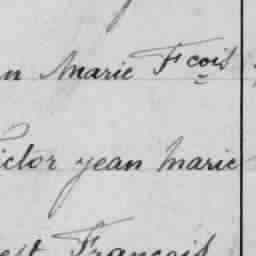 n Marie Fcois
ictor jean Marie
est François